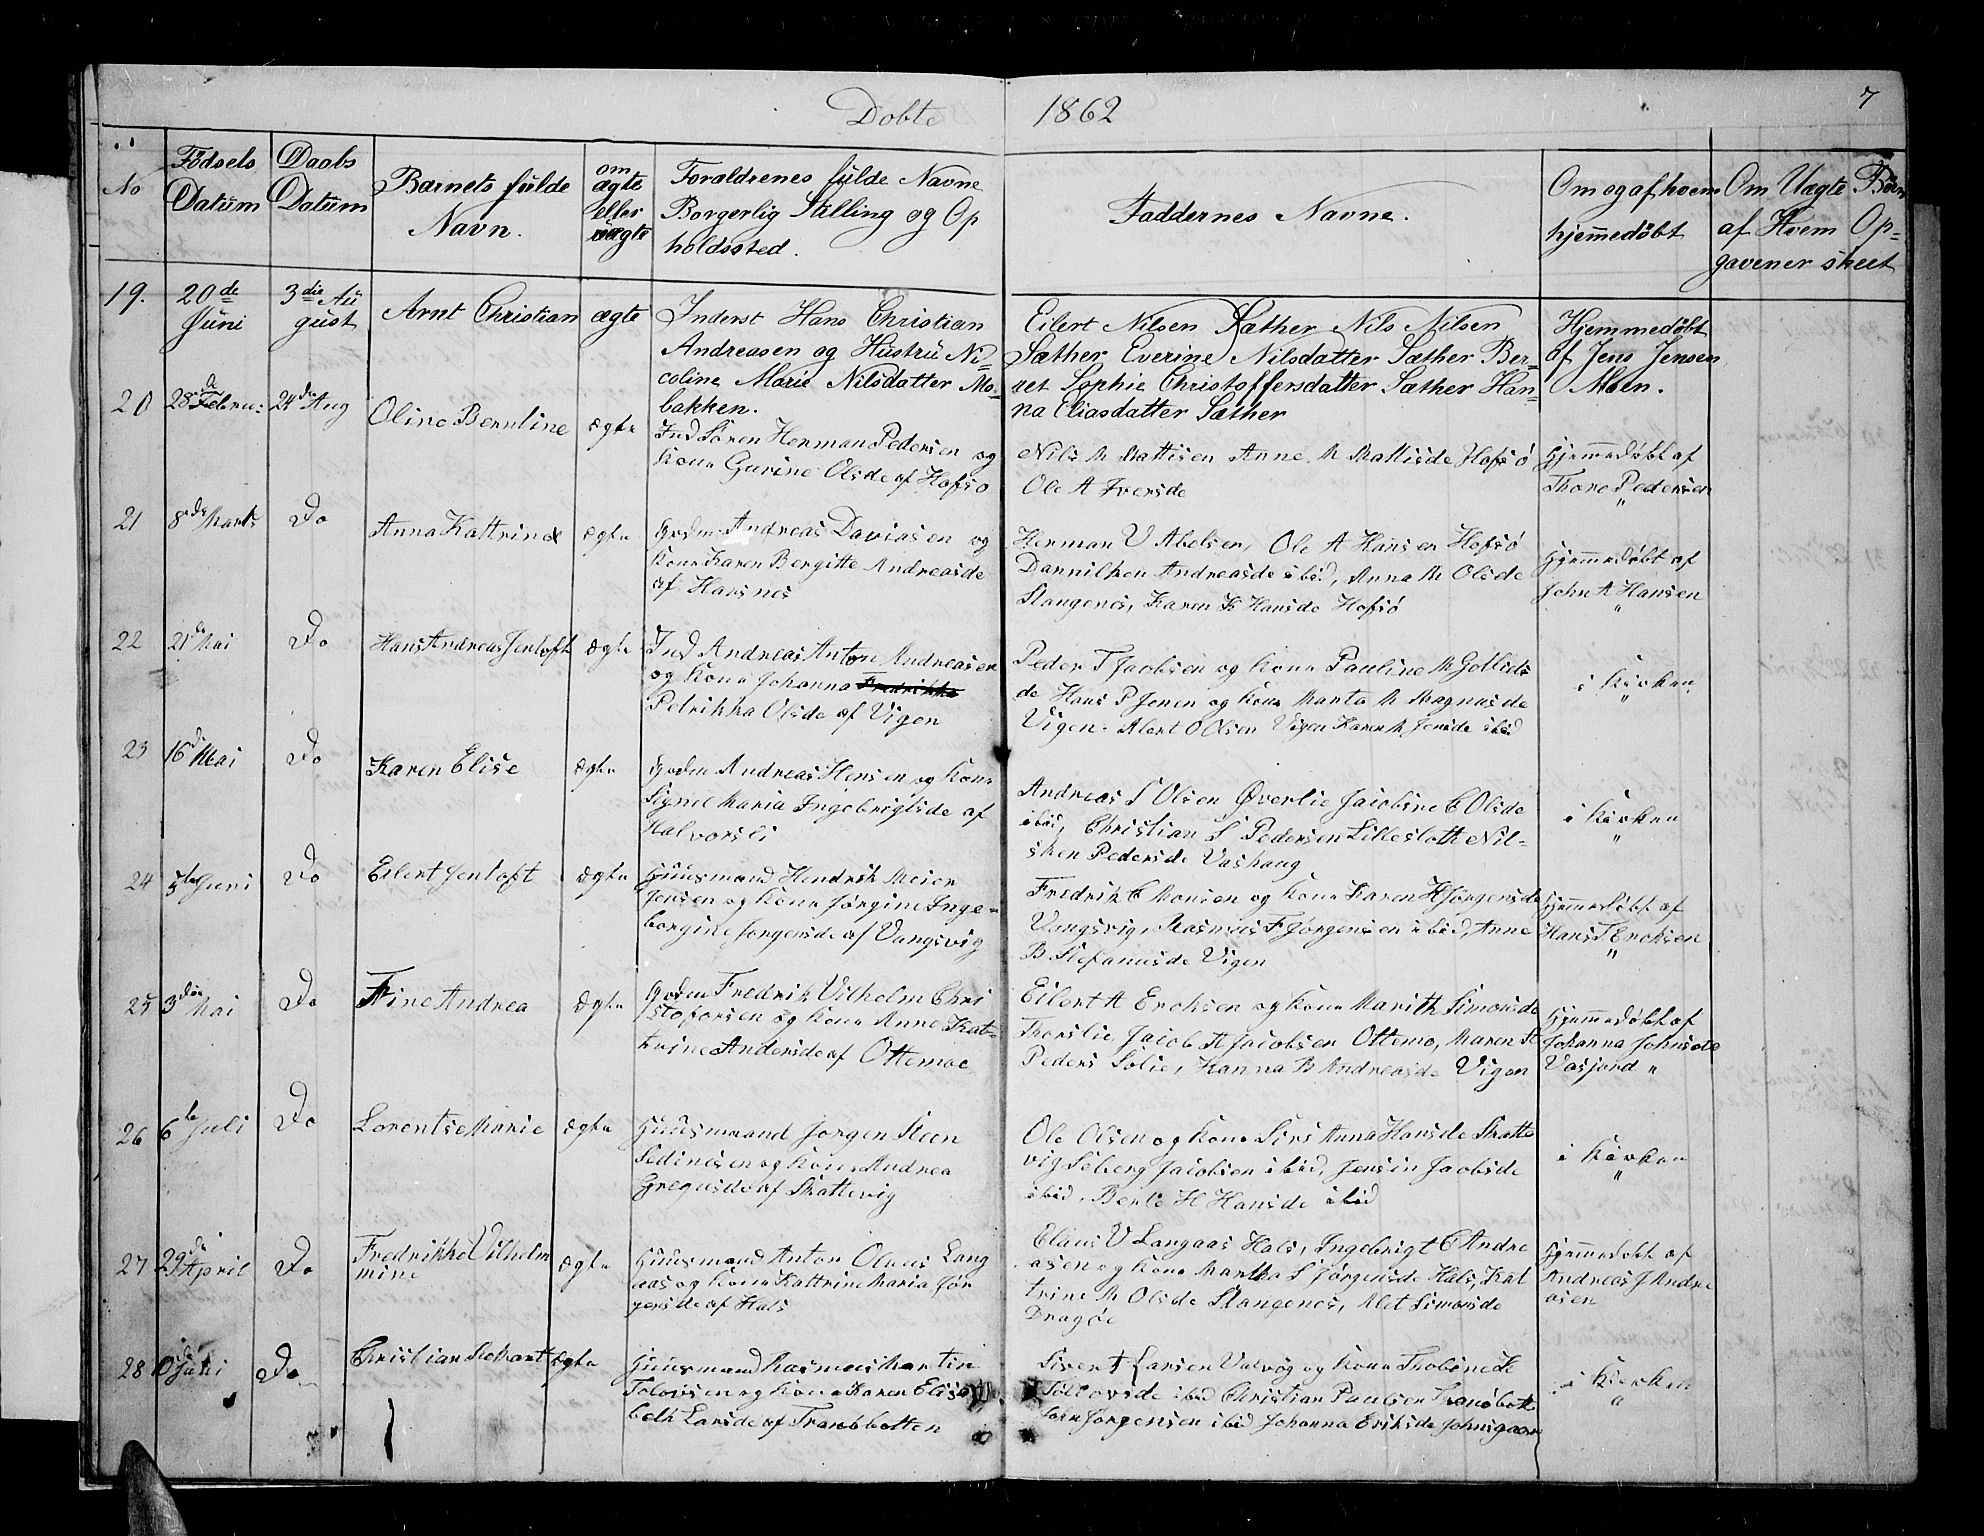 Døbte 1862 7
No
Fødsels Datum
Daabs Datum
Barnets fulde Navn.
om ægte eller uægte
Forældrenes fulde Navne
Borgerlig Stilling og Op
holdssted.
Faddernes Navne.
Om og af hvem
hjemmedøbt
Om Uægte Børn
af Hvem Op=
gavener skeet
19. 20de Juni 3die August Arnt Christian ægte
Inderst Hans Christian
Andreasen og Hustru Ni=
coline Marie Nilsdatter Mo=
bakken.
Eilert Nilsen Sæther Nils Nilsen
Sæther Everine Nilsdatter Sæther Ber=
net Sophie Christoffersdatter Sæther Han=
na Eliasdatter Sæther
Hjemmedøbt
af Jens Jensen
Moen.
20 28de Febru: 24de Aug Oline Berntine ægte
Ind Sören Herman Pedersen og
Kone Gurine Olsde af Hofsö
Nils M Mattisen Anne M Mattisde Hofsö
Ole A Iversde
Hjemmedøbt af
Thore Pedersen
21 8de Marts Do Anna Kattrine ægte
Gdm Andreas Daviasen og
Kone Karen Bergitte Andreasde
af Harsnes
Herman V Abelsen, Ole A Hansen Hofsö
Danniken Andreasde ibid, Anna M Olsde
Stangenes, Karen K Hansde Hofsö
Hjemmedøbt af
John A Hansen
22 21de Mai Do Hans Andreas Jentoft ægte
Ind Andreas Anton Andreasen
og Kone Johanna Fredrikke
Petrikka Olsde af Vigen
Peder T Jacobsen og Kone Pauline M Gotlids
de Hans P Jensen og Kone Marta M Magnusde
Vigen. Alert O Olsen Vigen Karen M Jensde ibid
i Kirken
23 16de Mai Do Karen Elise ægte
Gdm Andreas Hensen og Kone
Signil Maria Ingebrigtsde af
Halvorsli
Andreas S Olsen Øverlie Jacobine C Olsde
ibid, Christian S Pedersen Lilleslotte Nil-
sken Pedersde Vashaug
i Kirken
24 5te Juni Do Eilert Jentoft ægte
Huusmand Hendrik Meier
Jensen og Kone Jørgine Inge=
borgine Jørgensde af Vangsvig
Fredrik C Monsen og Kone Karen H Jörgensde
Vangsvig, Rasmus F Jørgensen ibid, Anne
B Stefanusde Vigen
Hjemmedøbt af
Hans T Ercksen
25 3die Mai Do Fine Andrea ægte
Gdm Fredrik Vilhelm Chri
stofersen og Kone Anne Kat-
trine Andersde af Ottemoe
Eilert A Ercksen og Kone Marith Simonsde
Thorslie, Jacob A Jacobsen Ottemo, Maren A
Peders Solie, Hanna B Andreasde Vigen
Hjemmedøbt af
Johanna Johnsde
Vasjord
26 6te Juli Do Lorentse Marie ægte
Huusmand Jørgen Steen
Sedinisen og Kone Andrea
Gregusde af Skattevig
Ole Olsen og Kone Sirs Anna Hansde Skatte
vig Seberg Jacobsen ibid, Jensin Jacobsde
ibid, Berle H Hansde ibid
i Kirken
27 29de April Do Fredrikke Vilhelm
mine ægte
Huusmand Anton Olaus Lang
aas og Kone Kattrine Maria Jør
gensde af Hals
Claus V Langaas Hals, Ingebrigt C Andre
asen og Kone Martha S Jørgensde Hals, Kat
trine M Olsde Stangenes, Alet Simonsde
Dragöe
Hjemmedøbt af
Andreas J Andre
asen
28 Juli Do Christian Rikart ægte
Huusmand Rasmus Martin
Tolovsen og Kone Karen Elisa
beth Larsde af Tranöbotten
Sivert Larsen Valvög og Kone Thobine K
Tollovsde ibid Christian Paulsen Tranöbott
Sörn Jörgensen ibid Johanna Eriksde Johnsgaarn
i Kirken